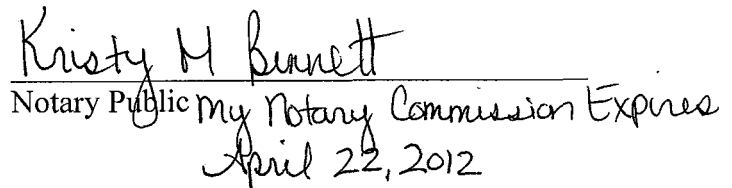 Kristy M Bennett
Notary Public My Notary Commission Expires
April 22, 2012